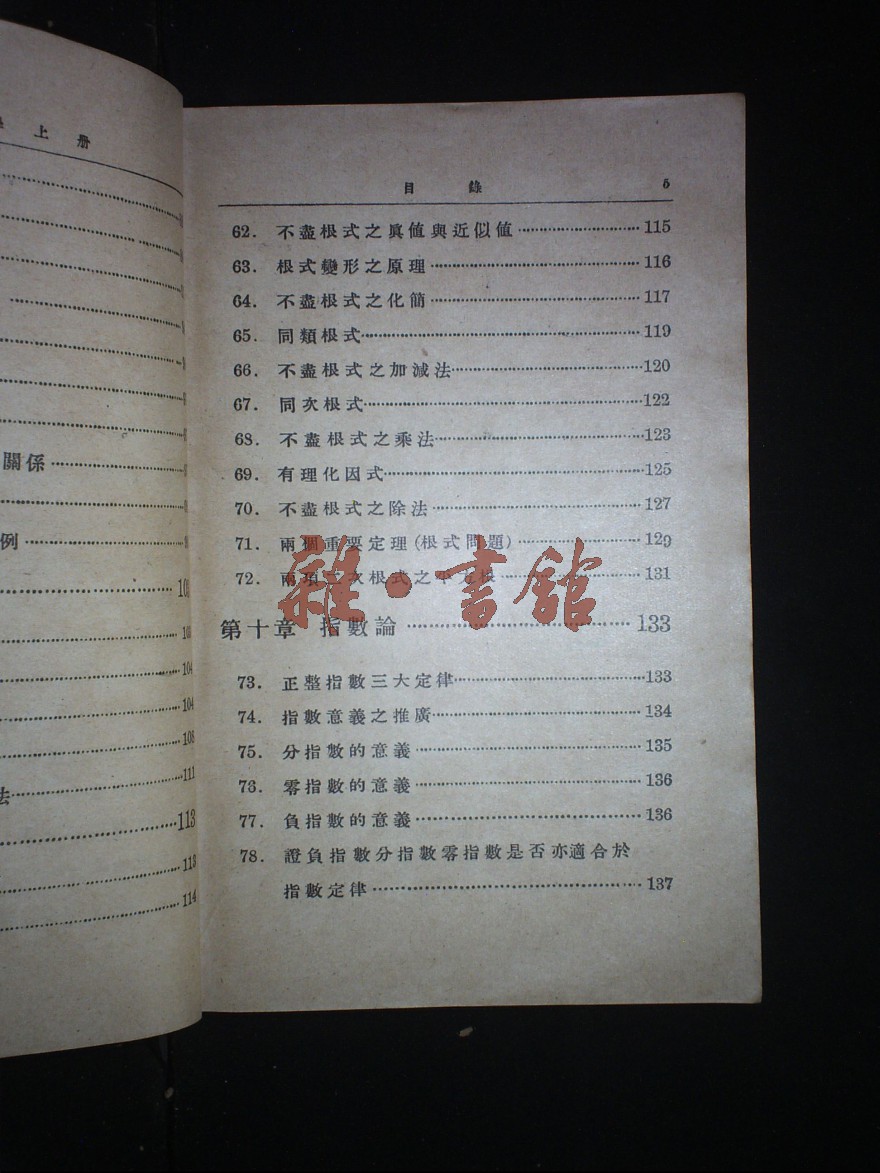 上册
關係
例
103
104
104
106
法 111
113
113
114
目錄 5
62. 不盡根式之眞值與近似值 115
63. 根式變形之原理 116
64. 不盡根式之化簡 117
65. 同類根式 119
66. 不盡根式之加減法 120
67. 同次根式 122
68. 不盡根式之乘法 123
69. 有理化因式 125
70. 不盡根式之除法 127
71. 兩個重要定理(根式問題) 129
72. 兩項二次根式之平方根 131
雜·書館
第十章 指數論 133
73. 正整指數三大定律 133
74. 指數意義之推廣 134
75. 分指數的意義 135
76. 零指數的意義 136
77. 負指數的意義 136
78. 證負指數分指數零指數是否亦適合於
指數定律 137